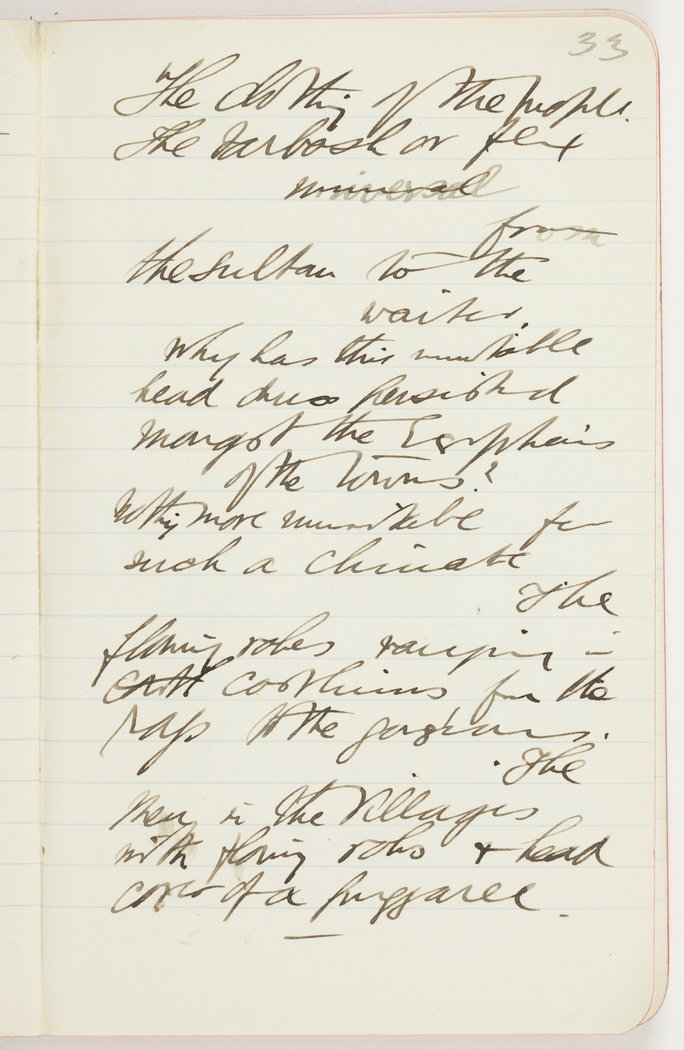 33
The clothing of the people.
The Tarbosh or fex
universal
from
the sultan to the
waiter.
Why has this unsuitable
head dress persisted
mongst the Egyptians
of the Towns?
Nothing more unsuitable for
such a climate
The
flowing robes ranging in
costliness from the
rags to the gorgeous.
The
men in the Villages
with flowing robes & head
cover of a puggaree.